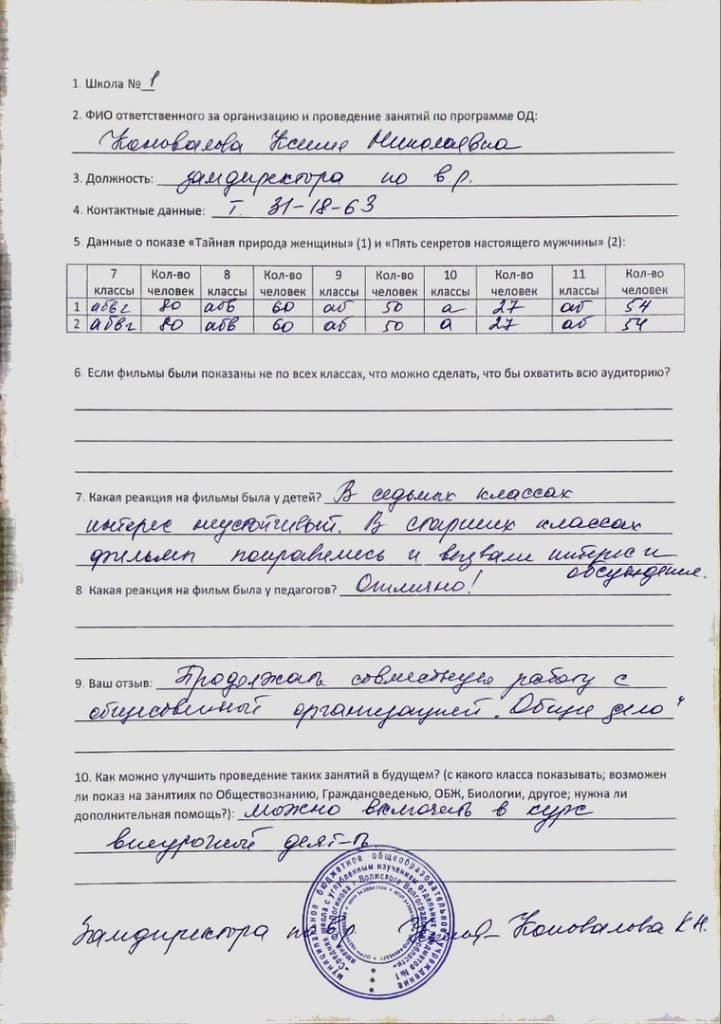 1. Школа № 1
2. ФИО ответственного за организацию и проведение занятий по программе ОД:
Коновалова Ксения Николаевна
3. Должность: замдиректора по в.р.
4. Контактные данные: т. 31-18-63
5. Данные о показе «Тайная природа женщины» (1) и «Пять секретов настоящего мужчины» (2):
7 классы Кол-во человек 8 классы Кол-во человек 9 классы Кол-во человек 10 классы Кол-во человек 11 классы Кол-во человек
1 абвг 80 абв 60 аб 50 а 27 аб 54
2 абвг 80 абв 60 аб 50 а 27 аб 54
6. Если фильмы были показаны не по всех классах, что можно сделать, что бы охватить всю аудиторию?
7. Какая реакция на фильмы была у детей? В седьмых классах
интерес неустойчивый. В старших классах
фильмы понравились и вызвали интерес и
обсуждения.
8 Какая реакция на фильм была у педагогов? Отлично!
9. Ваш отзыв: Продолжать совместную работу с
общественной организацией "Общее дело"
10. Как можно улучшить проведение таких занятий в будущем? (с какого класса показывать; возможен
ли показ на занятиях по Обществознанию, Граждановеденью, ОБЖ, Биологии, другое; нужна ли
дополнительная помощь?): можно включить в курс
внеурочной деят-ти.
муниципальное бюджетное общеобразовательное учреждение
Замдиректора по вр Коновалова К.Н.